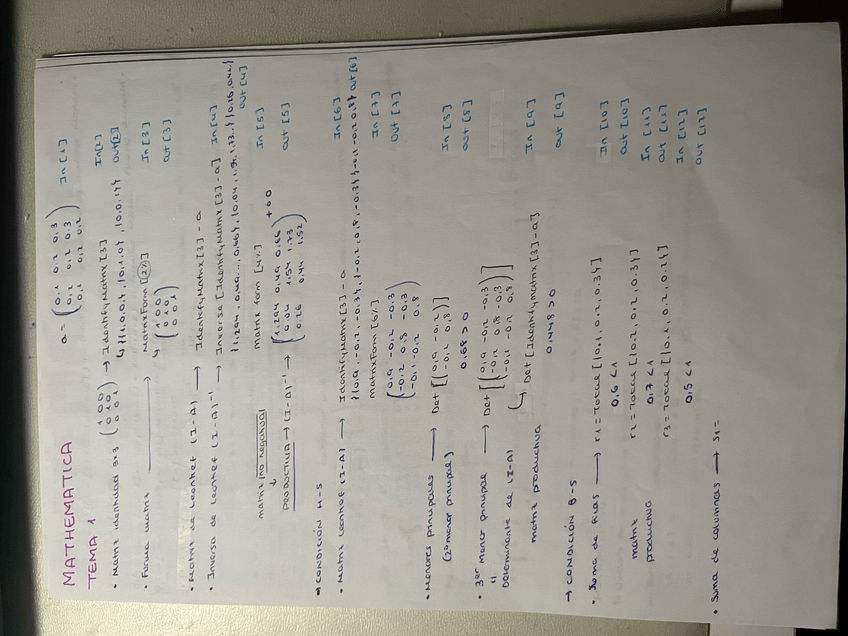 MATHEMATICA
TEMA 1
a = (0,1 0,2 0,3
0,2 0,2 0,3
0,1 0,2 0,2) In [1]
• Matriz identidad 3x3 (1 0 0
0 1 0
0 0 1) → IdentityMatrix [3] In [2]
↳ {{1,0,0}, {0,1,0}, {0,0,1}} Out [2]
• Forma matriz → MatrixForm [2%] In [3]
↳ (1 0 0
0 1 0
0 0 1) Out [3]
• Matriz de Leontief (I-A) → IdentityMatrix [3] - a
• Inversa de Leontief (I-A)⁻¹ → Inverse [IdentityMatrix [3] - a] In [4]
Out [4]
matriz no negativa Matrix form [4%] In [5]
↓
PRODUCTIVA → (I-A)⁻¹ → (1,294 0,49 0,66
0,04 1,54 1,73
0,26 0,44 1,52) Out [5]
→ CONDICIÓN H-S
• Matriz Leontief (I-A) → IdentityMatrix [3] - a In [6]
{{0,9, -0,2, -0,3}, {-0,2, 0,8, -0,3}, {-0,1 -0,2 0,8}} Out [6]
MatrixForm [6%] In [7]
(0,9 -0,2 -0,3
-0,2 0,8 -0,3
-0,1 -0,2 0,8) Out [7]
• Menores principales → Det [(0,9 -0,2
-0,2 0,8)] In [8]
(2º menor principal)
0,68 > 0 Out [8]
• 3er menor principal → Det [(0,9 -0,2 -0,3
-0,2 0,8 -0,3
-0,1 -0,2 0,8)]
"
Determinante de (I-A) ↳ Det [IdentityMatrix [3] - a] In [9]
matriz productiva 0,448 > 0 Out [9]
→ CONDICIÓN B-S
• Suma de filas → r1 = Total [{0.1, 0.2, 0.3}] In [10]
0,6 < 1 Out [10]
matriz productiva r2 = Total [{0.2, 0.2, 0.3}] In [11]
0,7 < 1 Out [11]
r3 = Total [{0.1, 0.2, 0.2}] In [12]
0,5 < 1 Out [12]
• Suma de columnas → S1 =